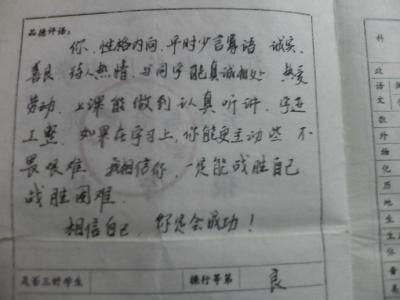 品德评语:
你,性格内向,平时少言寡语 诚实、
善良 待人热情,与同学能真诚相处 热爱
劳动,上课能做到认真听讲,字迹
工整,如果在学习上,你能更主动些 不
畏艰难 我相信你,一定能战胜自己
战胜困难.
相信自己,你定会成功!
是否三好学生
操行等第
良
科
政
语
文
数
外
物
化
历
地
生